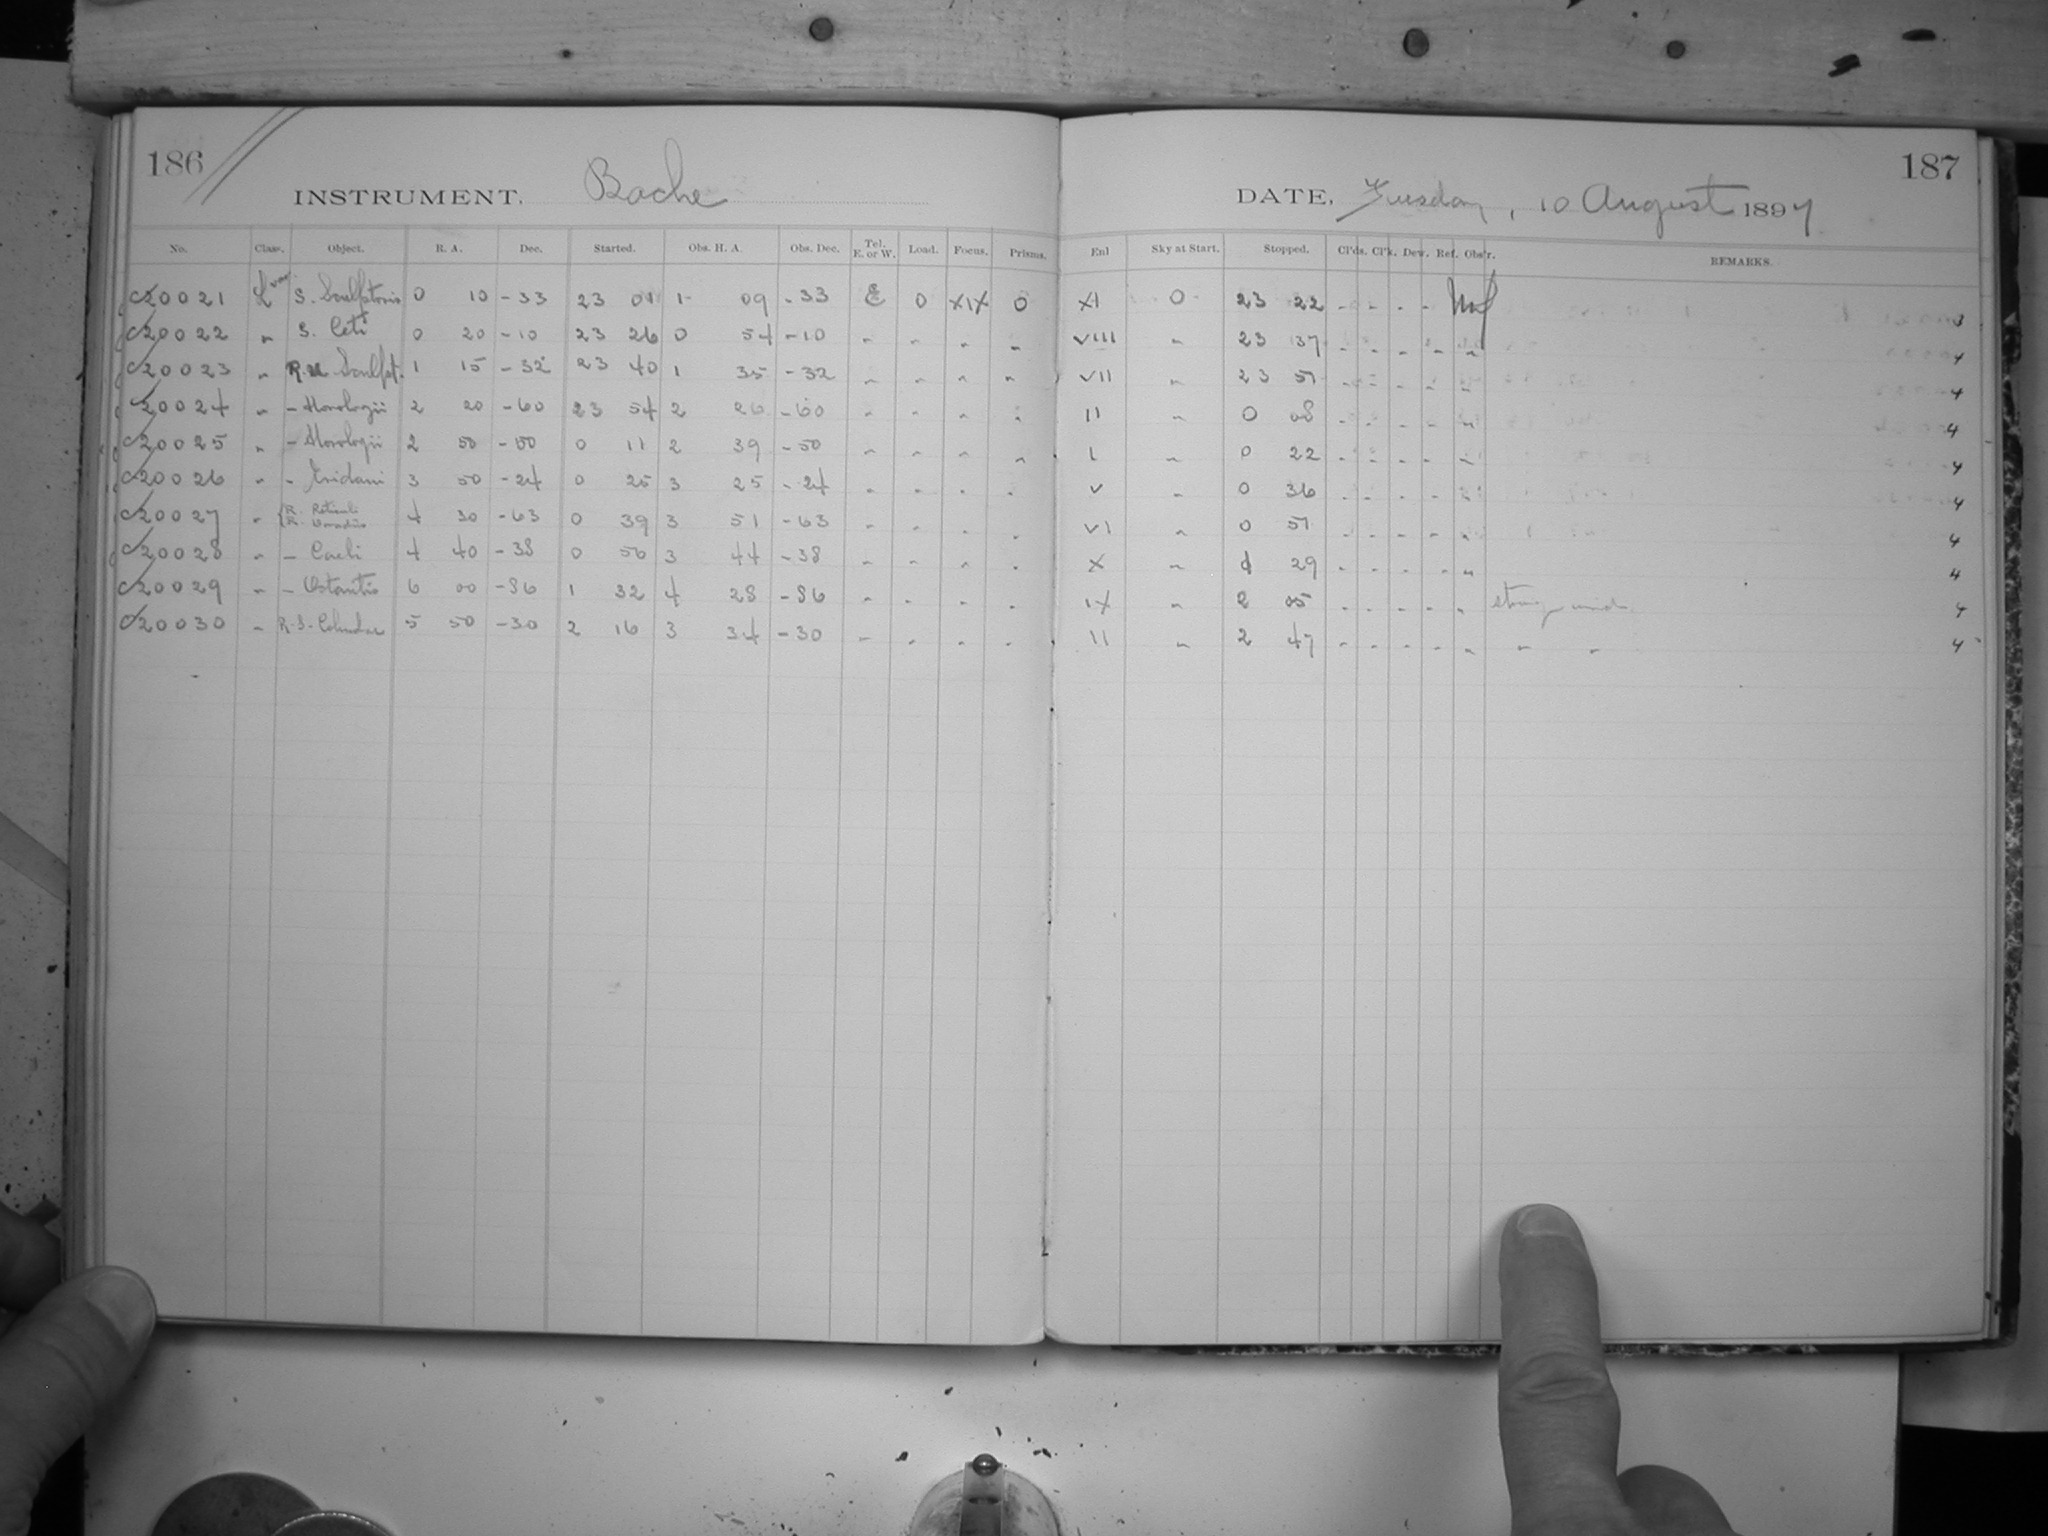 186
INSTRUMENT. Bache
No. Class. Object. R. A. Dec. Started. Obs. H. A. Obs. Dec. Tel. E. or W. Load. Focus. Prisms.
C20021 L var S. Sculptoris 0 10 -33 23 01 1 09 -33 E 0 XIX 0
C20022 " S. Ceti 0 20 -10 23 26 0 54 -10 " " " "
C20023 " R.U Sculpt. 1 15 -32 23 40 1 35 -32 " " " "
C20024 " - Horologii 2 20 -60 23 54 2 26 -60 " " " "
C20025 " - Horologii 2 50 -50 0 11 2 39 -50 " " " "
C20026 " - Eridani 3 50 -24 0 25 3 25 -24 " " " "
C20027 " { R. Reticuli R. Doradus 4 30 -63 0 39 3 51 -63 " " " "
C20028 " - Caeli 4 40 -38 0 56 3 44 -38 " " " "
C20029 " - Octantis 6 00 -86 1 32 4 28 -86 " " " "
C20030 " R-S-Columbae 5 50 -30 2 16 3 34 -30 " " " "
187
DATE, Tuesday, 10 August 1897
Enl Sky at Start. Stopped. Cl'ds. Cl'k. Dew. Ref. Obs'r. REMARKS.
XI 0 23 22 - - - - 3
VIII " 23 37 - - - - " 4
VII " 23 51 - - - - " 4
II " 0 08 - - - - " 4
I " 0 22 - - - - " 4
V " 0 36 - - - - " 4
VI " 0 51 - - - - " 4
X " 1 29 - - - - " 4
IX " 2 05 - - - - " strong wind 4
II " 2 47 - - - - " " " 4